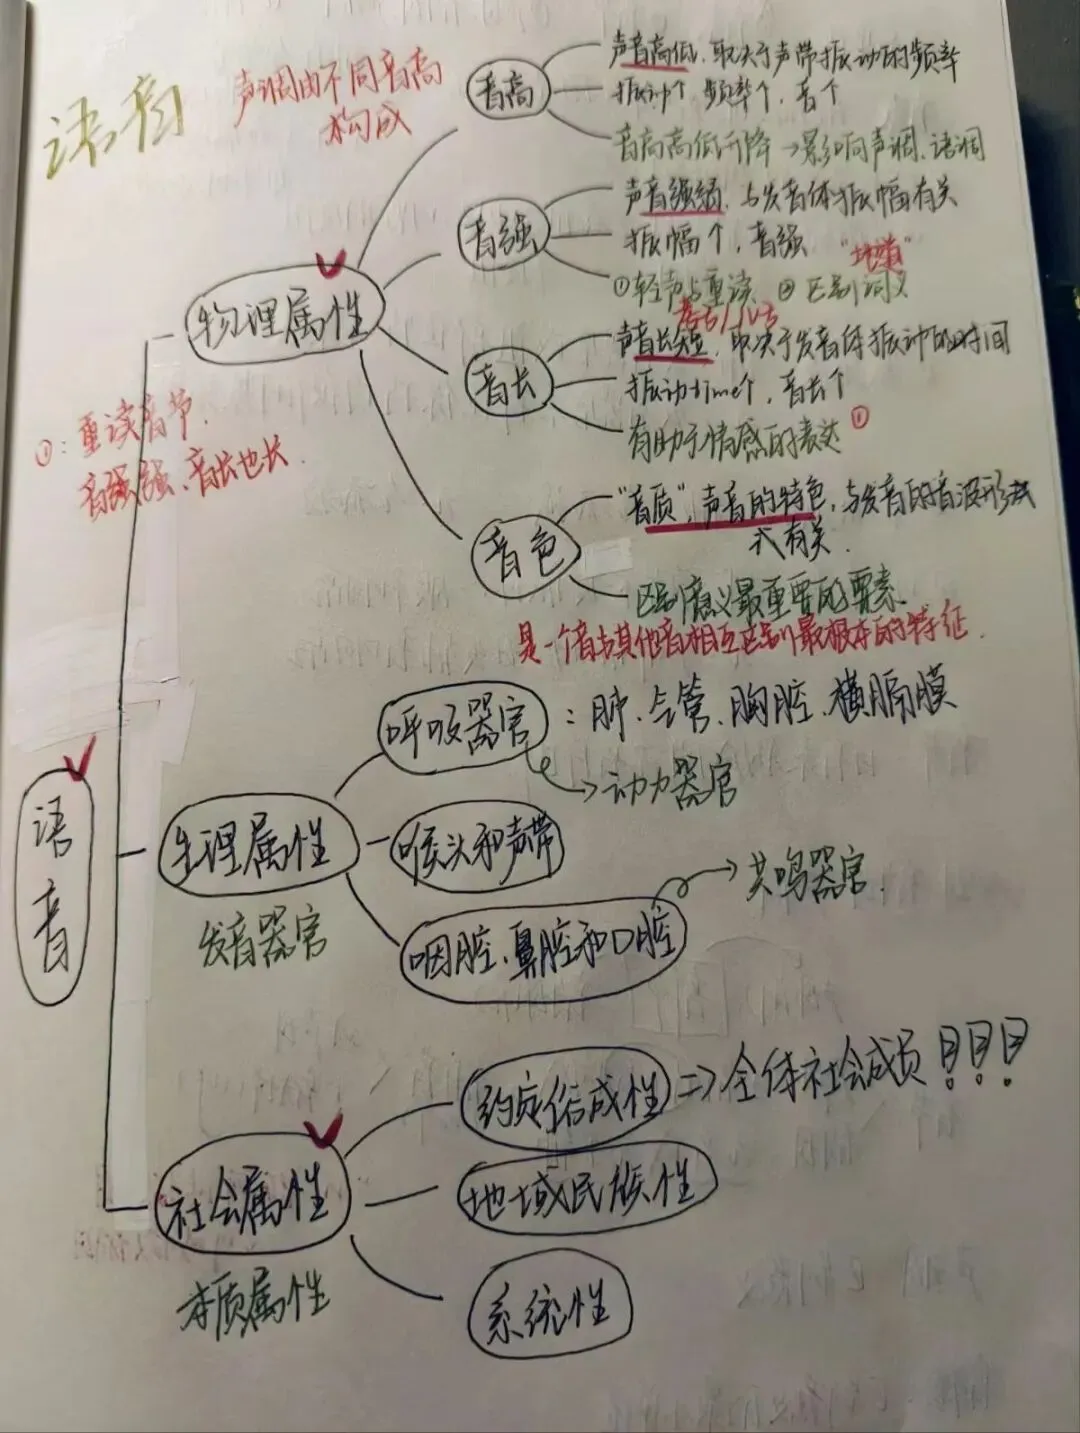 语音
声调由不同音高
构成
音高
声音高低.取决于声带振动的频率
振动↑ 频率↑, 音↑
音高高低升降→影响声调、语调
音强
声音强弱, 与发音体振幅有关
振幅↑, 音强
"地道"
①轻声与重读 ② 区别词义
物理属性
音长
声音长短, 取决于发音体振动的时间
振动time↑, 音长↑
有助于情感的表达①
①: 重读音节,
音强强、音长也长.
音色
"音质", 声音的特色, 与发音的音波形式
式有关.
区别意义最重要的要素.
是一个音与其他音相互区别最根本的特征.
呼吸器官
: 肺、气管、胸腔、横膈膜
→动力器官
语音
生理属性
发音器官
喉头和声带
→共鸣器官.
咽腔、鼻腔和口腔
社会属性
本质属性
约定俗成性
⇒全体社会成员!!!
地域民族性
系统性